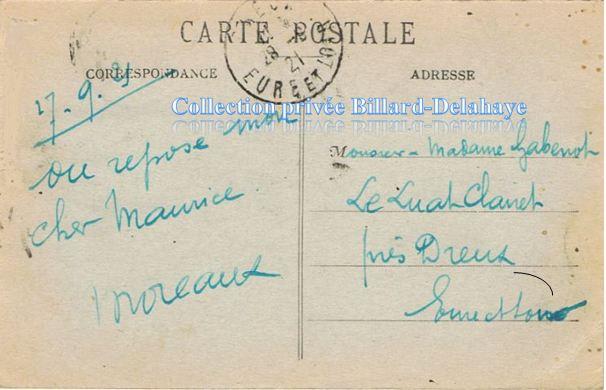 CARTE POSTALE
28
21
EURE ET LOIR
CORRESPONDANCE
ADRESSE
Collection privée Billard-Delahaye
27-9-21
ou repose mon
cher Maurice
Moreaux
Monsieur - Madame Gabenot
Le Luat Clairet
près Dreux
Eure et Loire